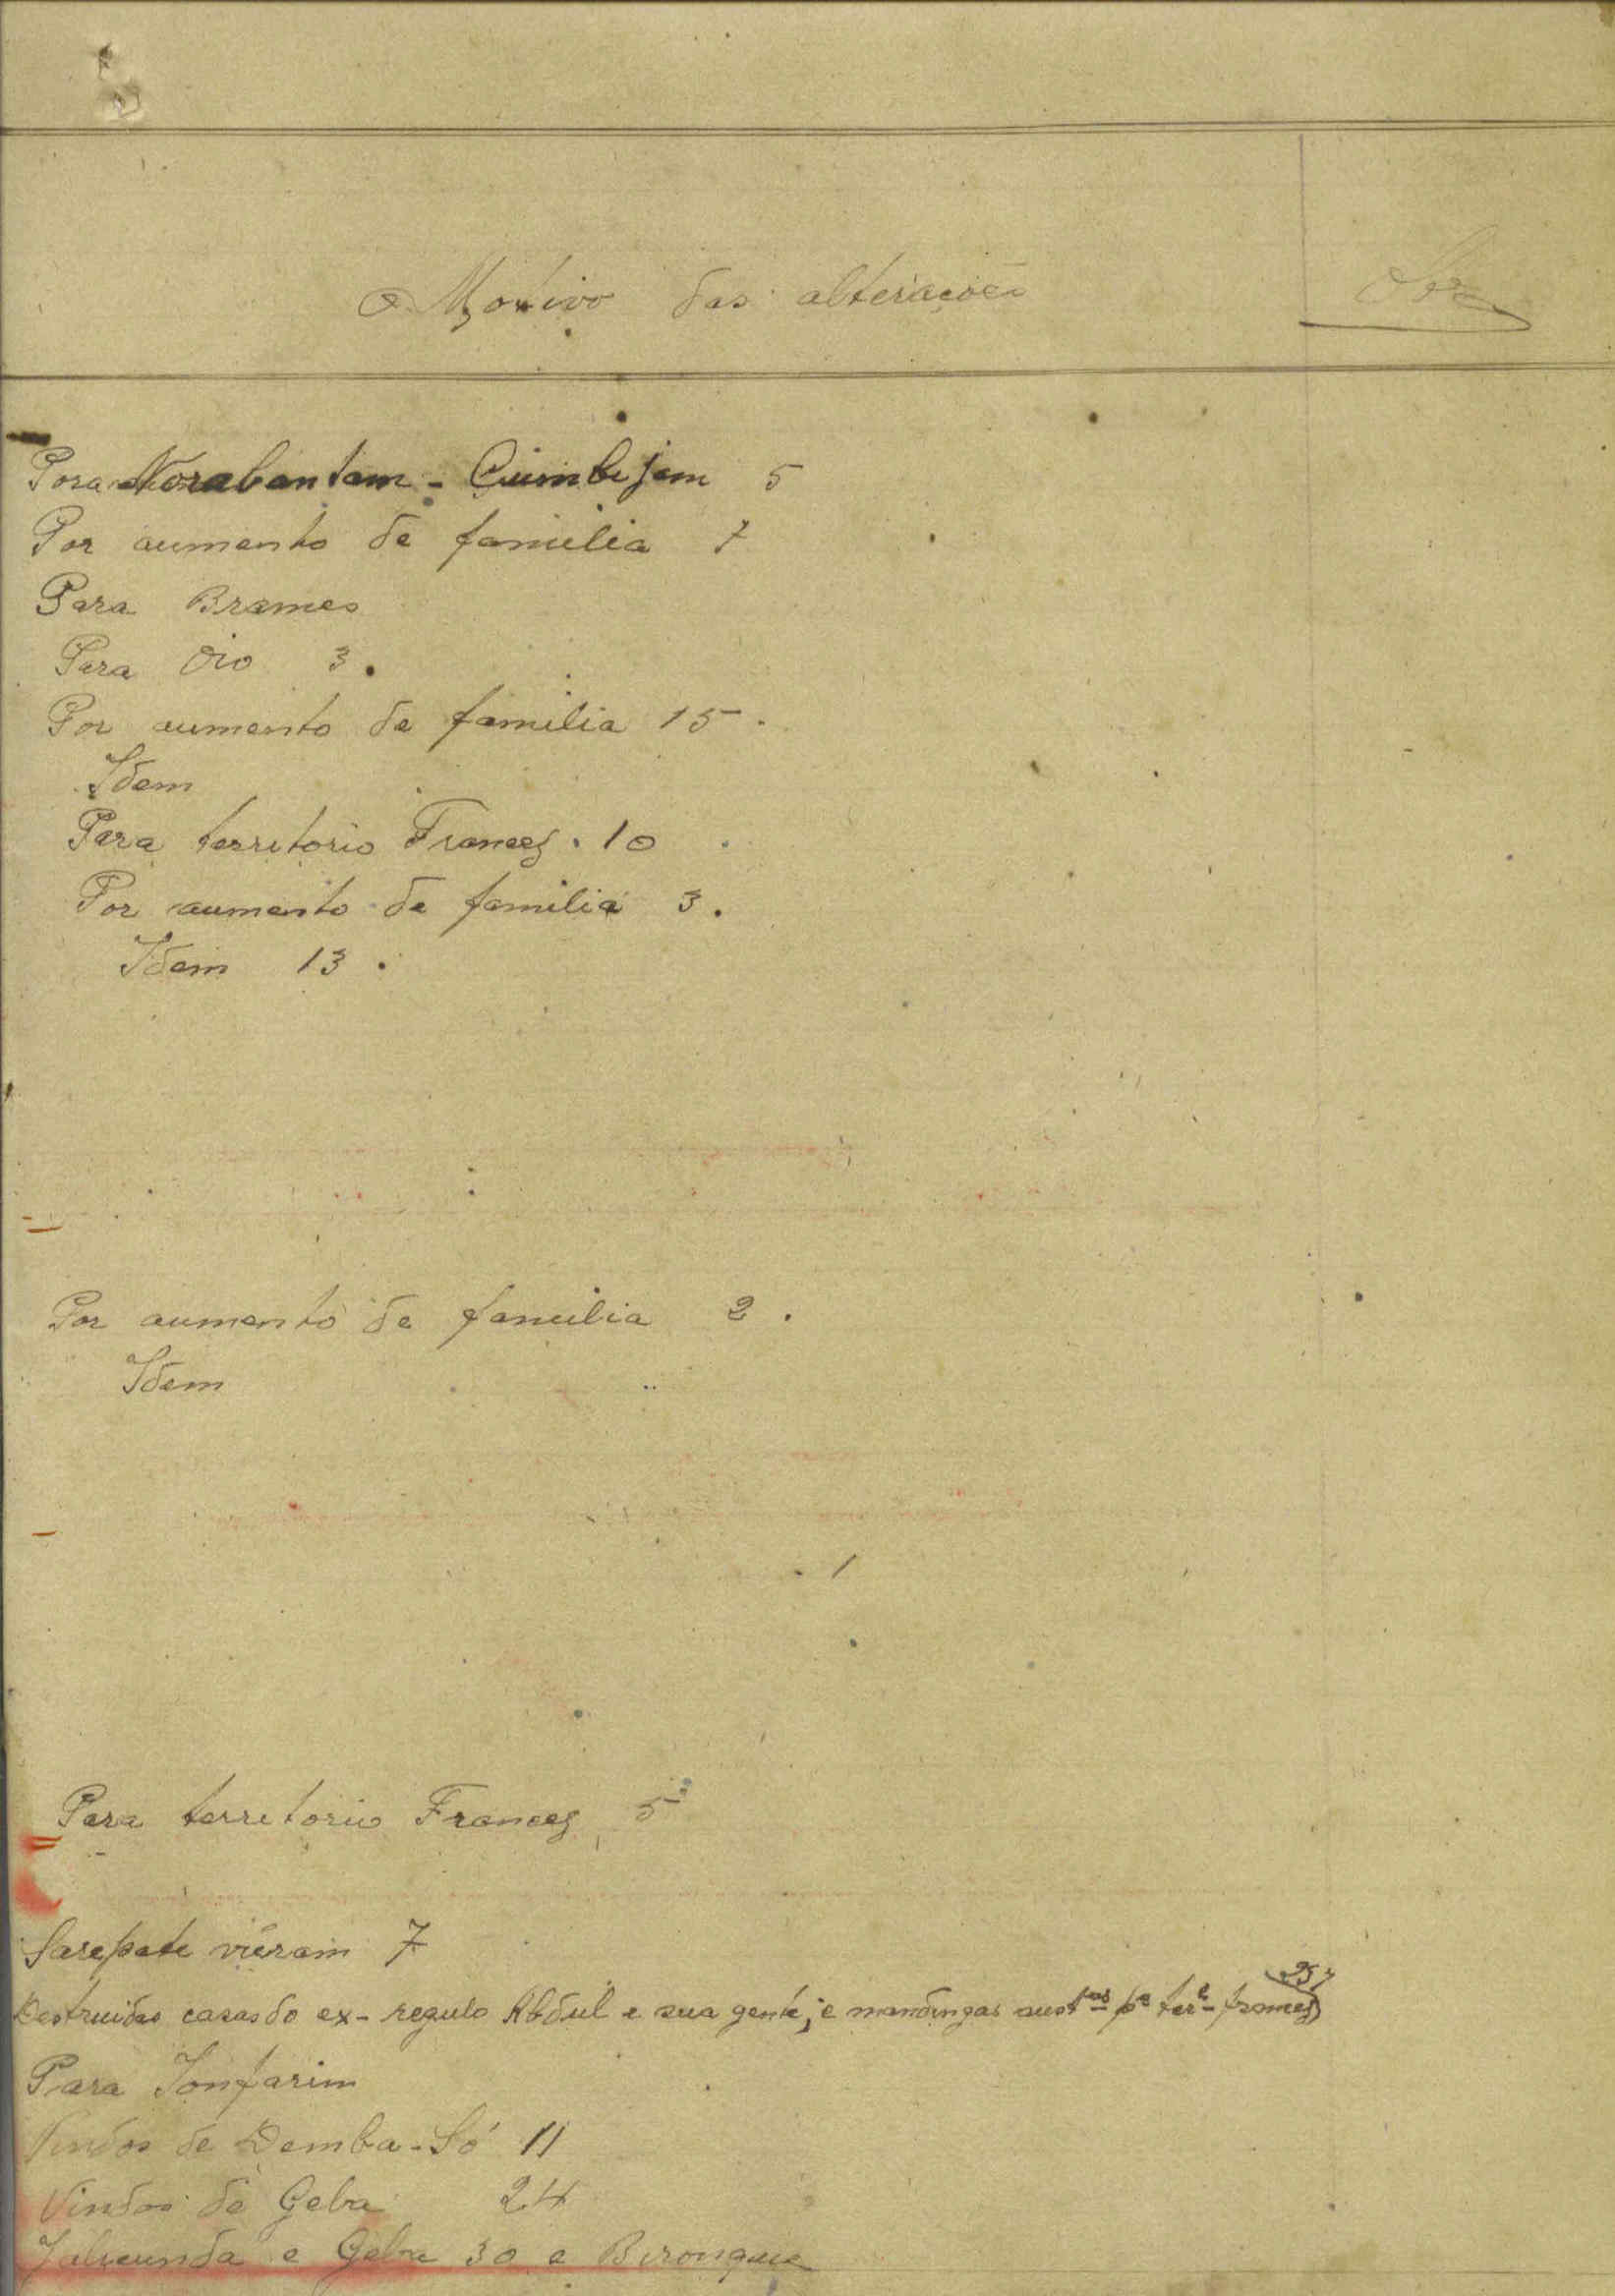 Motivo das alterações
Para Norabantam - Cumbijam 5
Por aumento de familia 7
Para Brames
Para Oio 3.
Por aumento de familia 15.
Idem
Para territorio Francez. 10
Por aumento de familia 3.
Idem 13.
Por aumento de familia 2.
Idem
Para territorio Francez 5
Sarepate viéram 7
25
Destruidas casas do ex-regulo Abdul e sua gente, e mandingas pª terº francez
Para Jonfarim
Vindos de Demba-Só 11
Vindos de Geba 24
e Geba 30 e